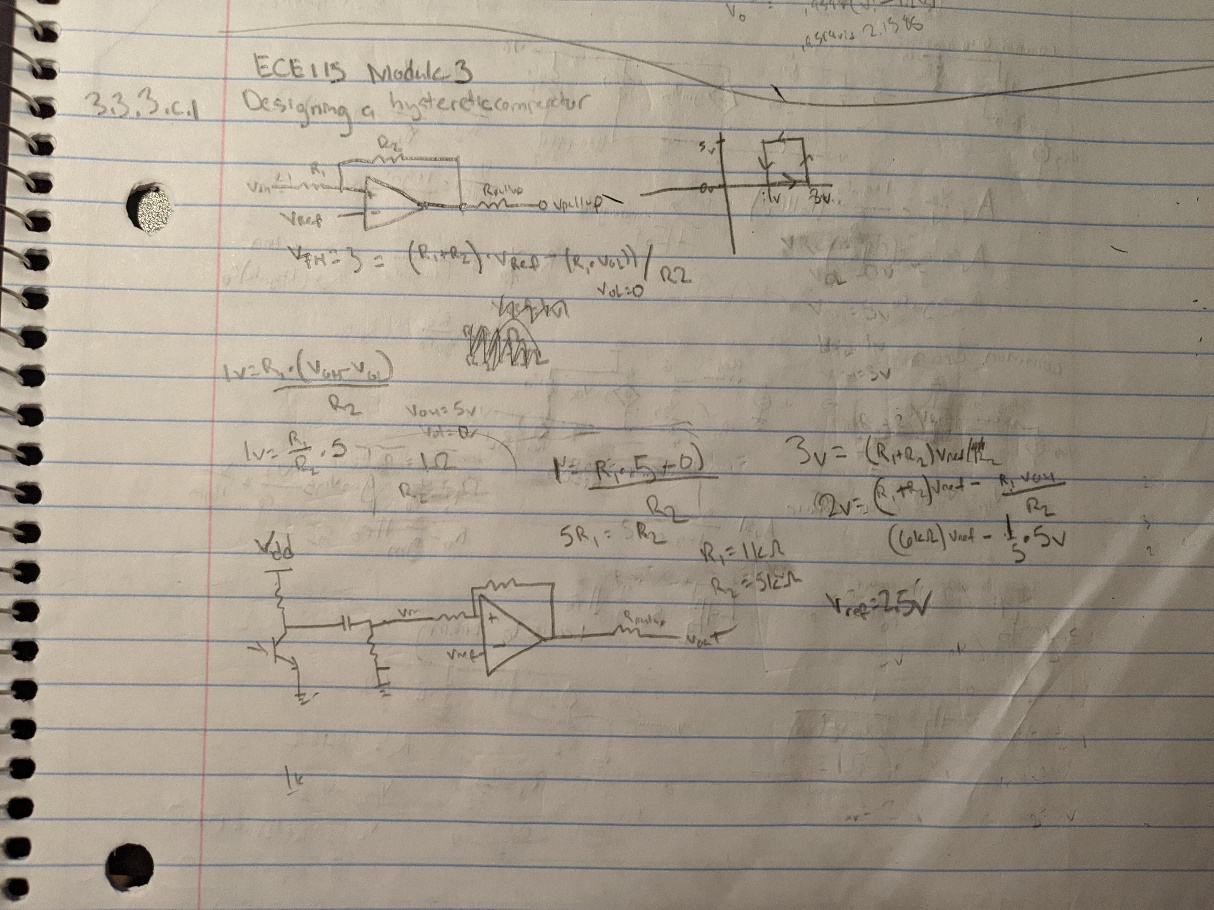 Vo = .4545(
2.1545
ECE115 Module 3
3.3.3.c.1 Designing a hysteretic comparator
R2
R1
Vin
+
Vref -
Rpullup
Vpullup
5v
0v
1v 3v
VTH=3 = (R1+R2)·VRef - (R1·VOL))/R2
VOL=0
1v=R1·(VOH-VOL)
R2
VOH=5v
VOL=0
1v= R1/R2 · 5
1Ω
R2
1= R1·5-0)
R2
5R1= 5R2
R1=1kΩ
R2=5kΩ
3v= (R1+R2)Vref/
2v= (R1+R2)Vref - R1VOH
R2
(6kΩ)Vref - 1/5·5v
Vref=2.5V
Vdd
Vin
+
Vref -
Rpullup
Vout
1k